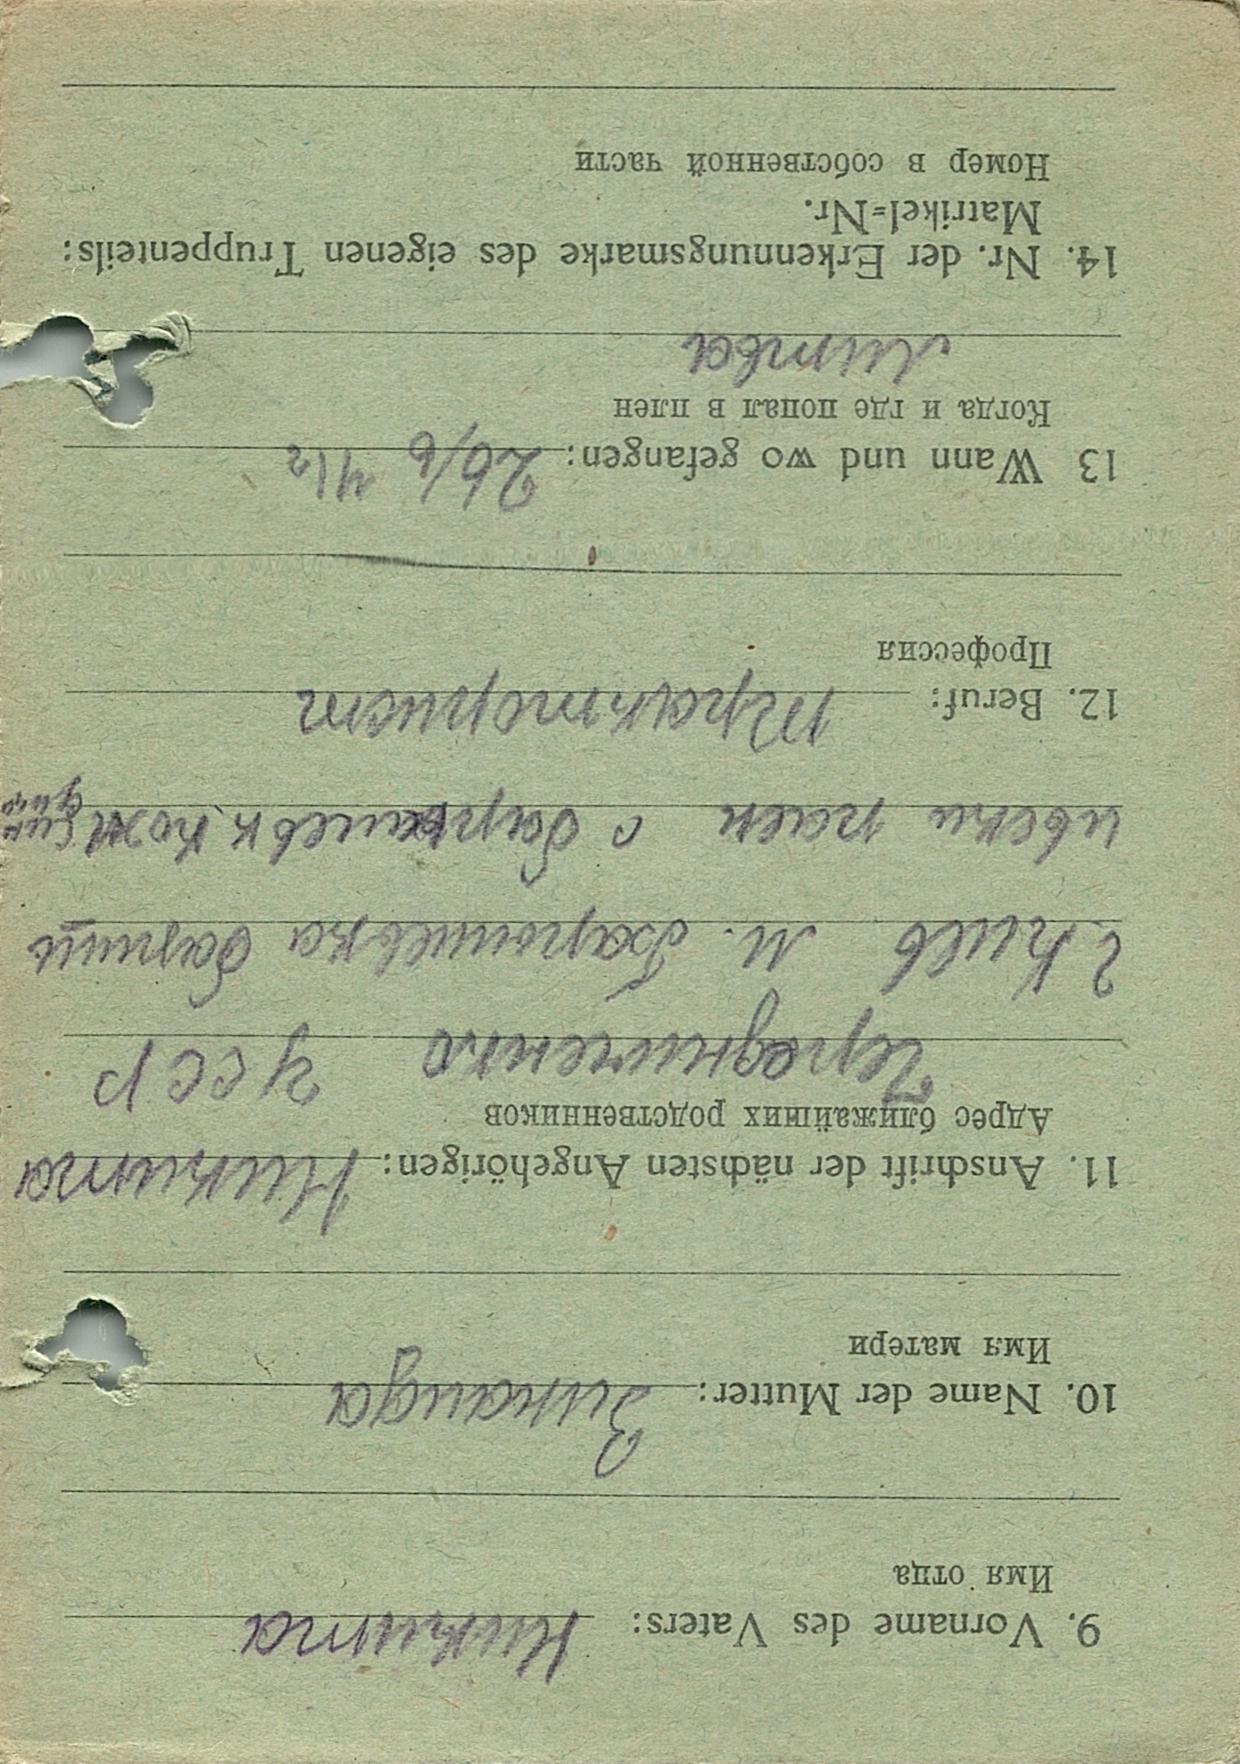 9. Vorname des Vaters: Никита
Имя отца
10. Name der Mutter: Зинаида
Имя матери
11. Anschrift der nächsten Angehörigen: Никита
Адрес ближайших родственников
Чередниченко УССР
г Киев м. Барышевка
раен с
12. Beruf: Тракторист
Профессия
13 Wann und wo gefangen: 26/6 41г
Когда и где попал в плен
Литва
14. Nr. der Erkennungsmarke des eigenen Truppenteils:
Matrikel=Nr.
Номер в собственной части